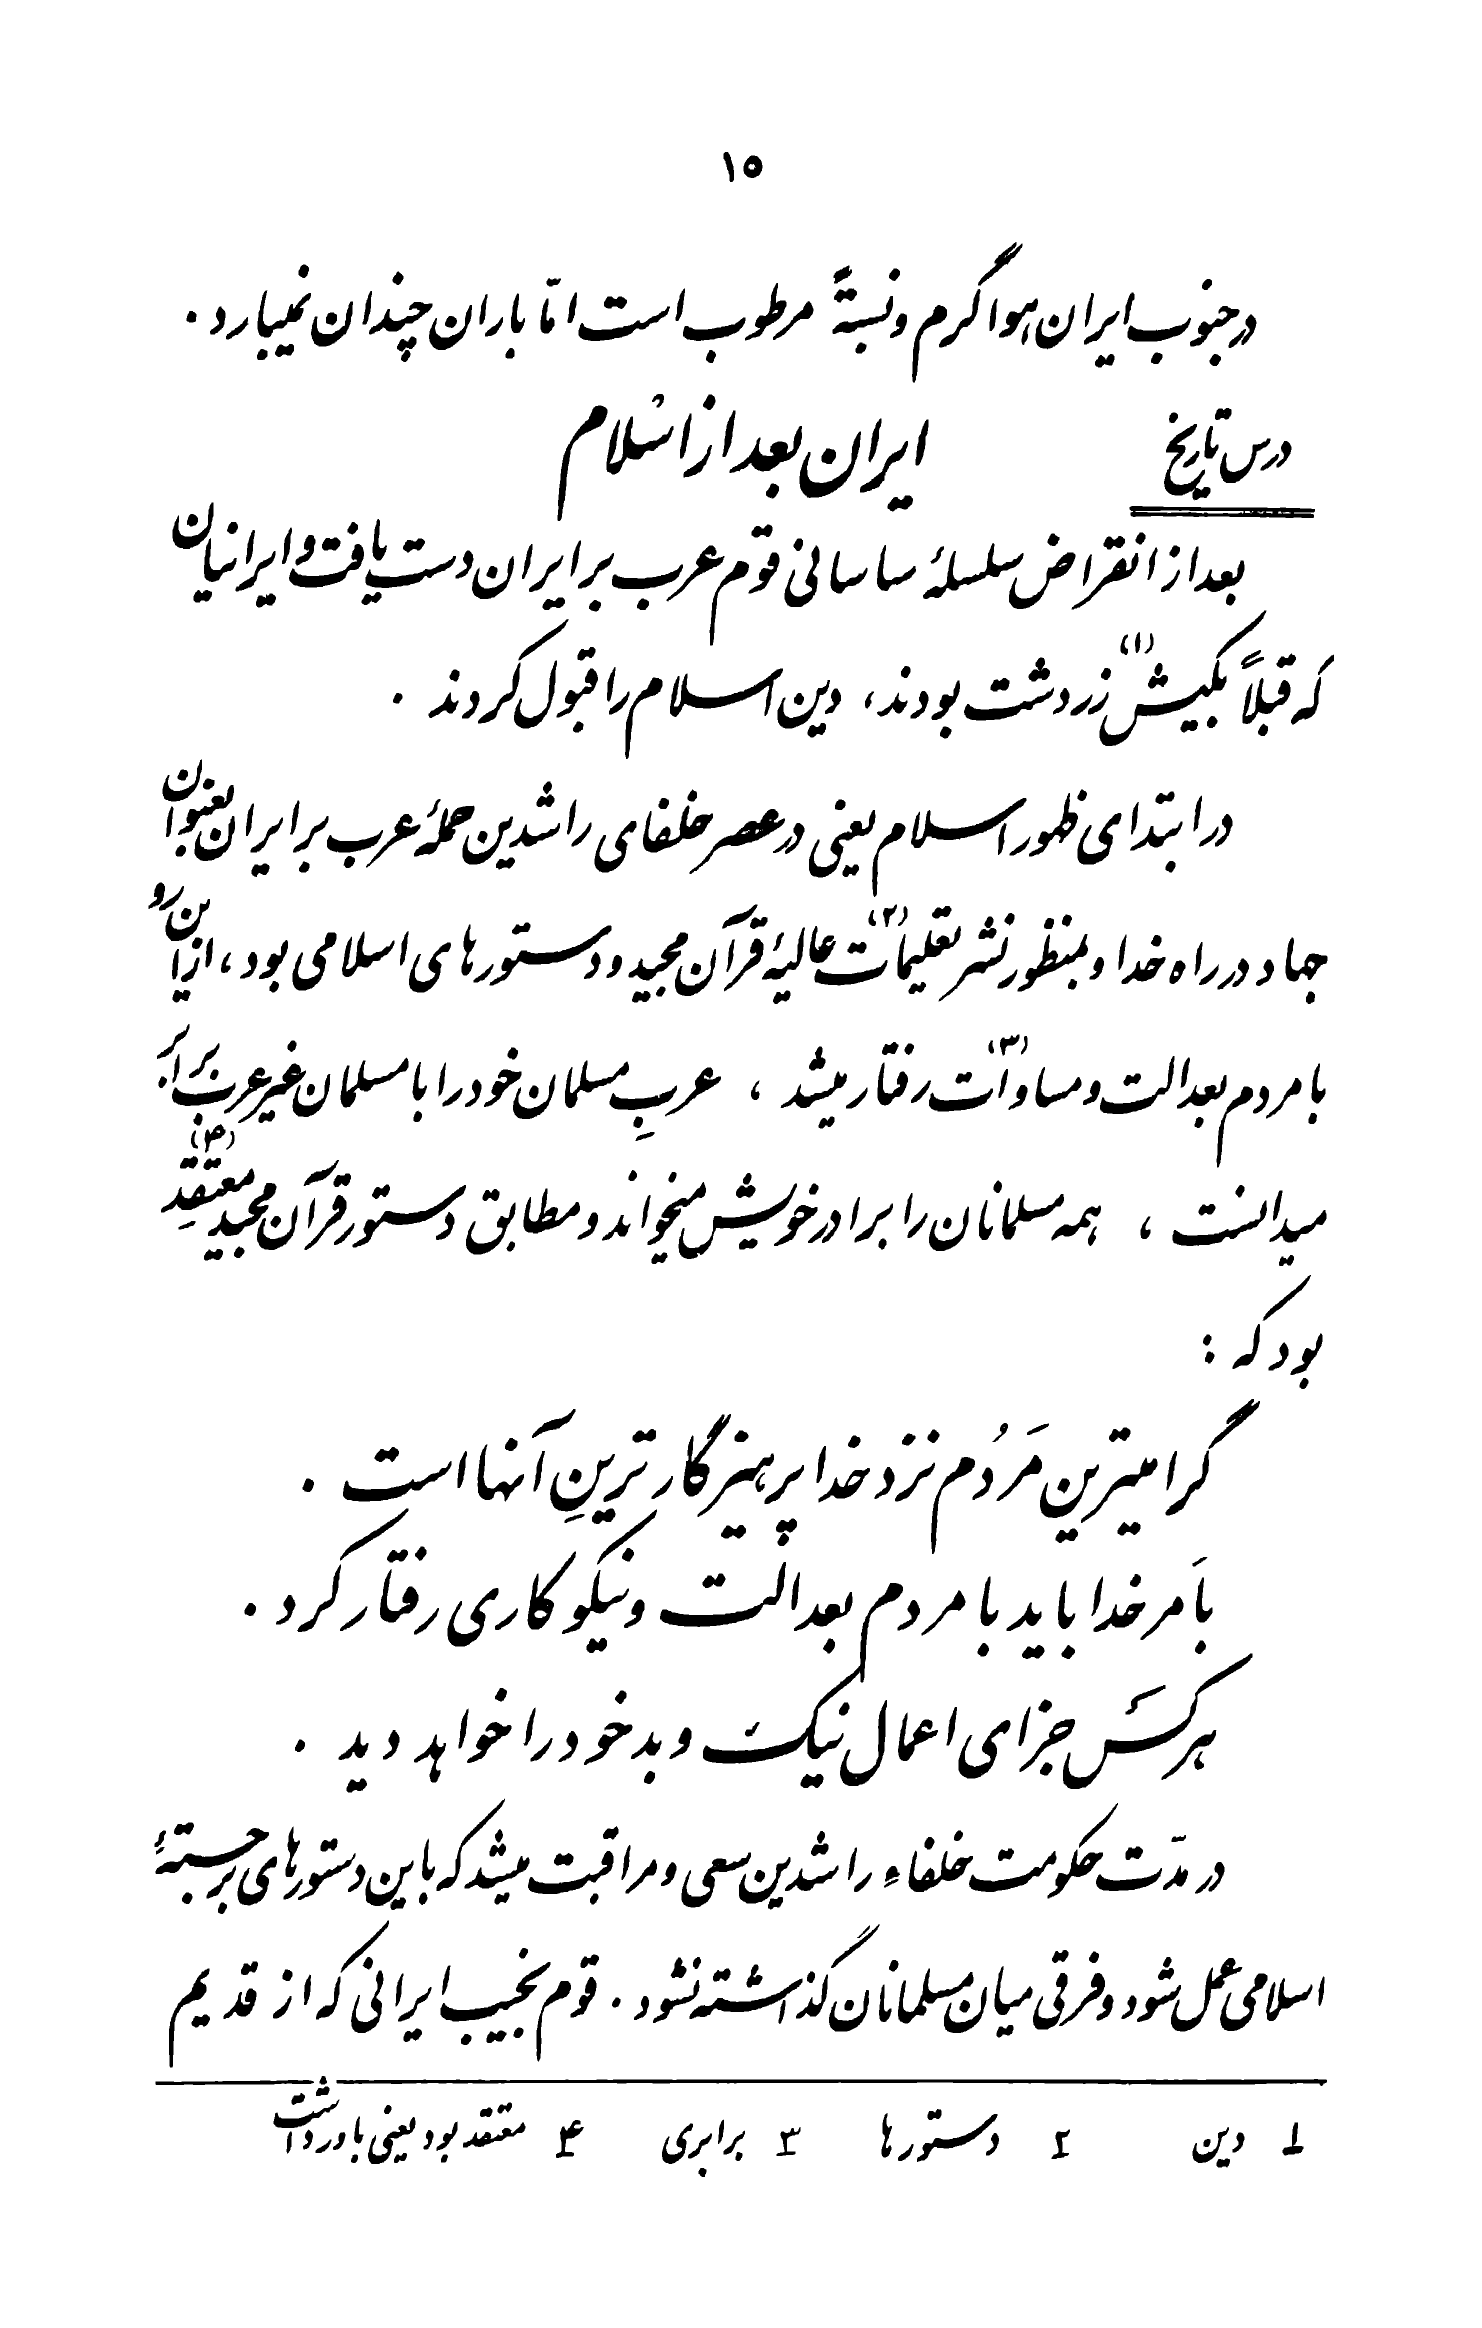 ۱۵
در جنوب ایران هوا گرم و نسبةً مرطوب است امّا باران چندان نمیبارد .
درس تاریخ
ایران بعد از اسْلام
بعد از انقراض سلسلهٔ ساسانی قوم عرب بر ایران دست یافت و ایرانیان
که قبلاً بکیش (۱) زردشت بودند ، دین اسلام را قبول کردند .
در ابتدای ظهور اسلام یعنی در عصر خلفای راشدین حملهٔ عرب بر ایران بعنوان
جهاد در راه خدا و بمنظور نشر تعلیمات (۲) عالیهٔ قرآن مجید و دستورهای اسلامی بود ، از این رو
با مردم بعدالت و مساوات (۳) رفتار میشد ، عربِ مسلمان خود را با مسلمان غیر عرب برابر
میدانست ، همه مسلمانان را برادر خویش میخواند و مطابق دستور قرآن مجید معتقدِ (۴)
بود که :
گرامیترین مَردُم نزد خدا پرهیزگار ترینِ آنها است .
بأمر خدا باید با مردم بعدالت و نیکو کاری رفتار کرد .
هر کَس جزای اعمال نیک و بد خود را خواهد دید .
در مدّت حکومت خلفاءِ راشدین سعی و مراقبت میشد که باین دستورهای برجستهٔ
اسلامی عمل شود و فرقی میان مسلمانان گذاشته نشود . قوم نجیب ایرانی که از قدیم
۱ دین ۲ دستورها ۳ برابری ۴ معتقد بود یعنی باور داشت